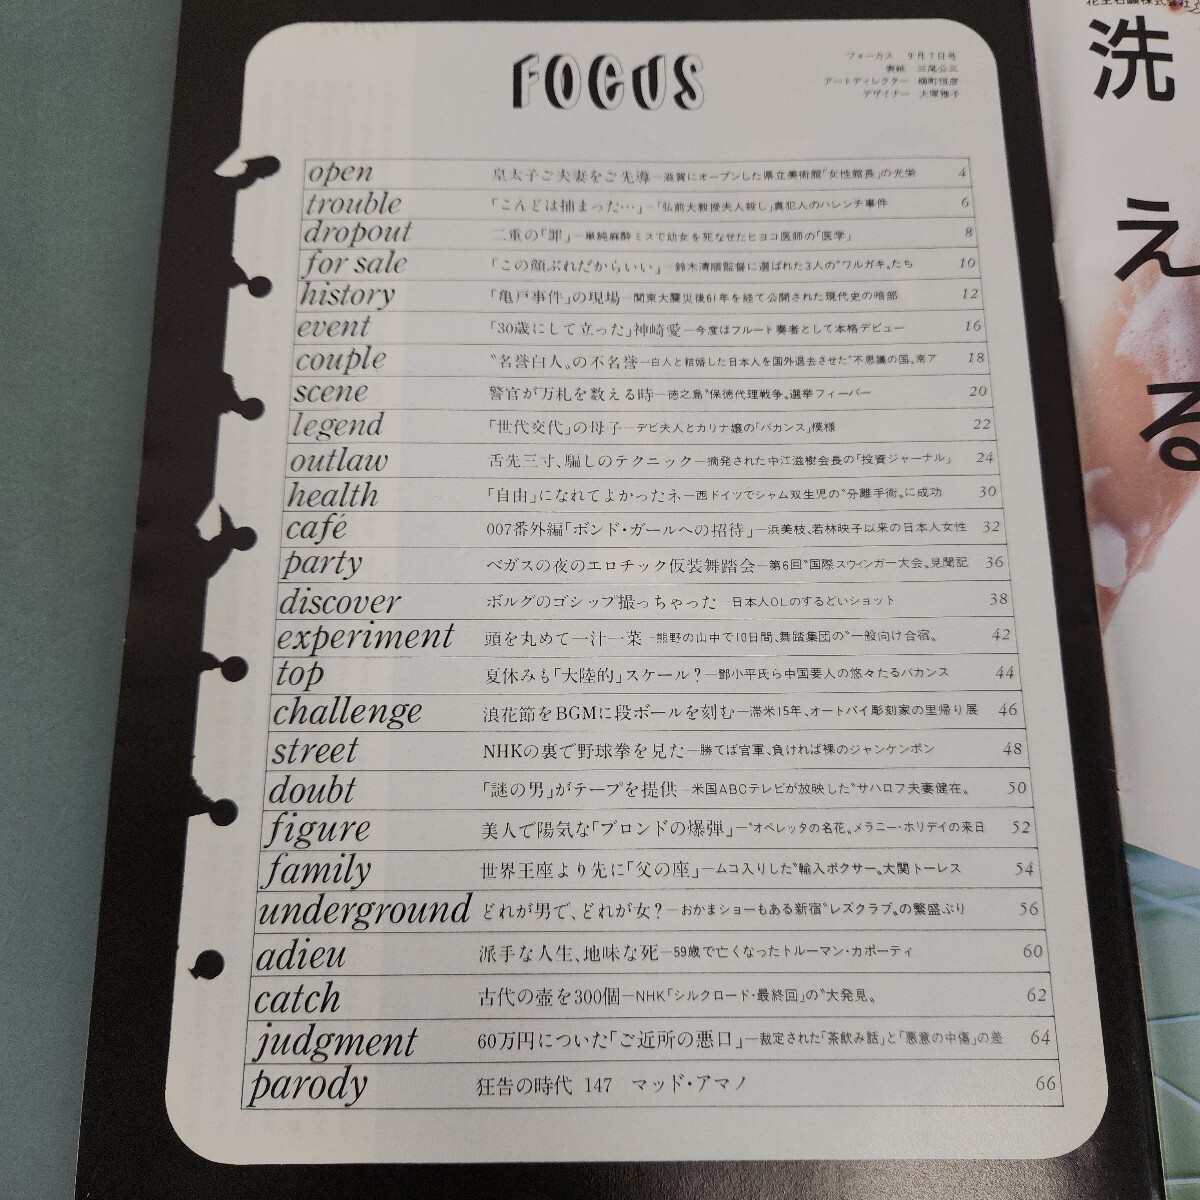 FOCUS
フォーカス 9月7日号
表紙 三尾公三
アートディレクター 柳町恒彦
デザイナー 大塚雅子
open 皇太子ご夫妻をご先導―滋賀にオープンした県立美術館「女性館長」の光栄 4
trouble 「こんどは捕まった…」―「弘前大教授夫人殺し」真犯人のハレンチ事件 6
dropout 二重の「罪」―単純麻酔ミスで幼女を死なせたヒヨコ医師の「医学」 8
for sale 「この顔ぶれだからいい」―鈴木清順監督に選ばれた3人の〝ワルガキ〟たち 10
history 「亀戸事件」の現場―関東大震災後61年を経て公開された現代史の暗部 12
event 「30歳にして立った」神崎愛―今度はフルート奏者として本格デビュー 16
couple 〝名誉白人〟の不名誉―白人と結婚した日本人を国外退去させた〝不思議の国〟南ア 18
scene 警官が万札を数える時―徳之島〝保徳代理戦争〟選挙フィーバー 20
legend 「世代交代」の母子―デビ夫人とカリナ嬢の「バカンス」模様 22
outlaw 舌先三寸、騙しのテクニック―摘発された中江滋樹会長の「投資ジャーナル」 24
health 「自由」になれてよかったネ―西ドイツでシャム双生児の〝分離手術〟に成功 30
café 007番外編「ボンド・ガールへの招待」―浜美枝、若林映子以来の日本人女性 32
party ベガスの夜のエロチック仮装舞踏会―第6回〝国際スウィンガー大会〟見聞記 36
discover ボルグのゴシップ撮っちゃった―日本人OLのするどいショット 38
experiment 頭を丸めて一汁一菜―熊野の山中で10日間、舞踏集団の〝一般向け合宿〟 42
top 夏休みも「大陸的」スケール?―鄧小平氏ら中国要人の悠々たるバカンス 44
challenge 浪花節をBGMに段ボールを刻む―滞米15年、オートバイ彫刻家の里帰り展 46
street NHKの裏で野球拳を見た―勝てば官軍、負ければ裸のジャンケンポン 48
doubt 「謎の男」がテープを提供―米国ABCテレビが放映した〝サハロフ夫妻健在〟 50
figure 美人で陽気な「ブロンドの爆弾」―〝オペレッタの名花〟メラニー・ホリデイの来日 52
family 世界王座より先に「父の座」―ムコ入りした〝輸入ボクサー〟大関トーレス 54
underground どれが男で、どれが女?―おかまショーもある新宿〝レズクラブ〟の繁盛ぶり 56
adieu 派手な人生、地味な死―59歳で亡くなったトルーマン・カポーティ 60
catch 古代の壺を300個―NHK「シルクロード・最終回」の〝大発見〟 62
judgment 60万円についた「ご近所の悪口」―裁定された「茶飲み話」と「悪意の中傷」の差 64
parody 狂告の時代 147 マッド・アマノ 66
洗
える